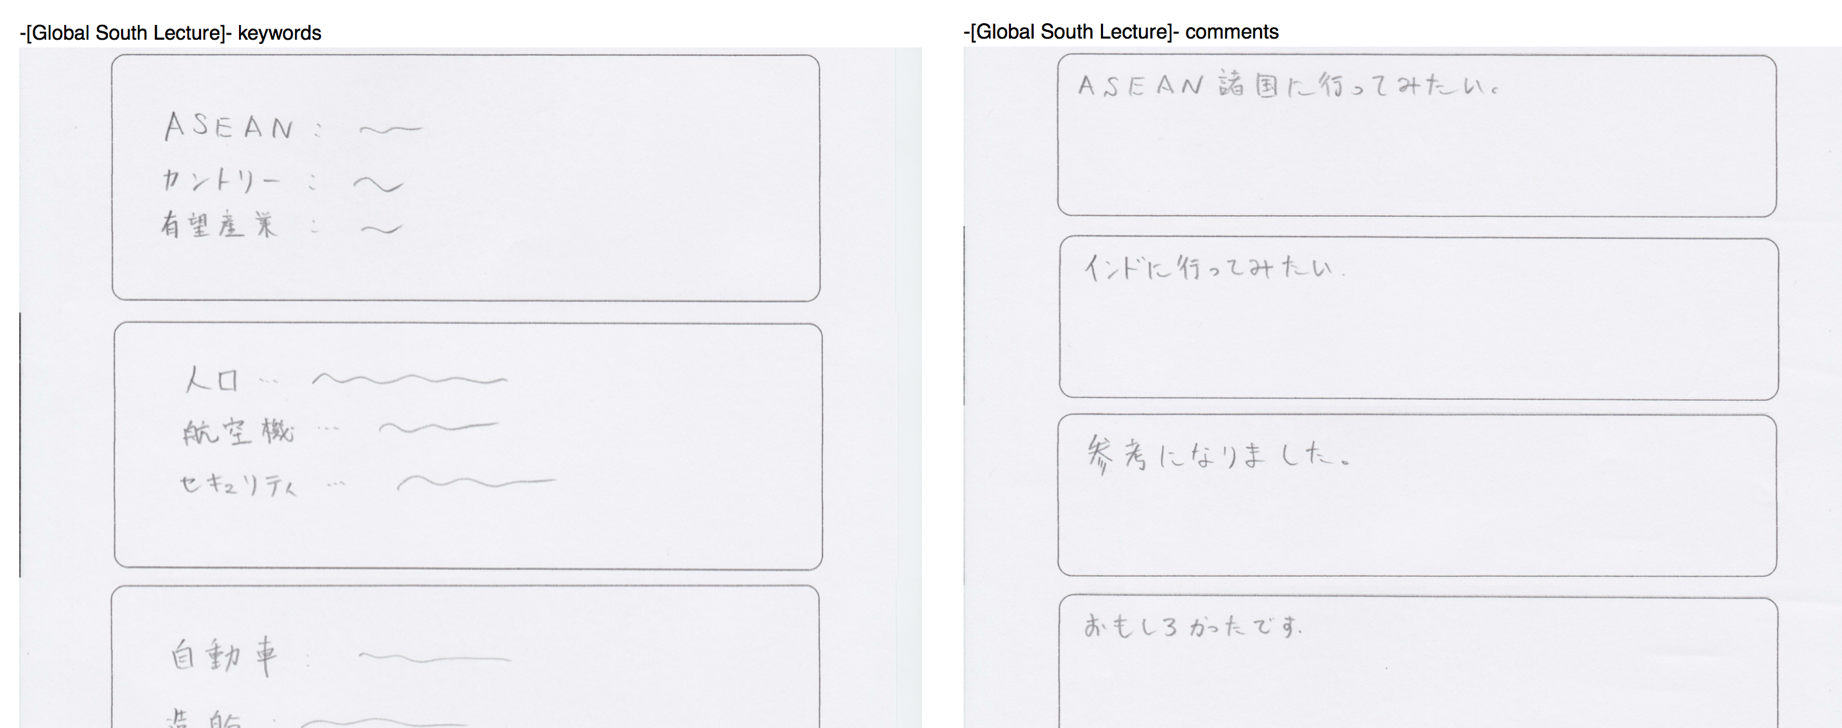 -[Global South Lecture]- keywords
ASEAN :
カントリー :
有望産業 :
人口 …
航空機 …
セキュリティ …
自動車 :
造船 :
-[Global South Lecture]- comments
ASEAN諸国に行ってみたい。
インドに行ってみたい.
参考になりました。
おもしろかったです.